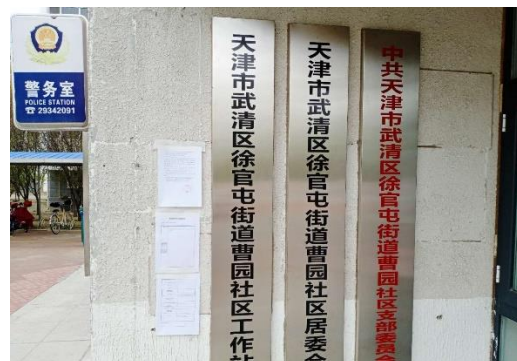 警务室
POLICE STATION
☎ 29342091
天津市武清区徐官屯街道曹园社区工作站
天津市武清区徐官屯街道曹园社区居委会
中共天津市武清区徐官屯街道曹园社区支部委员会